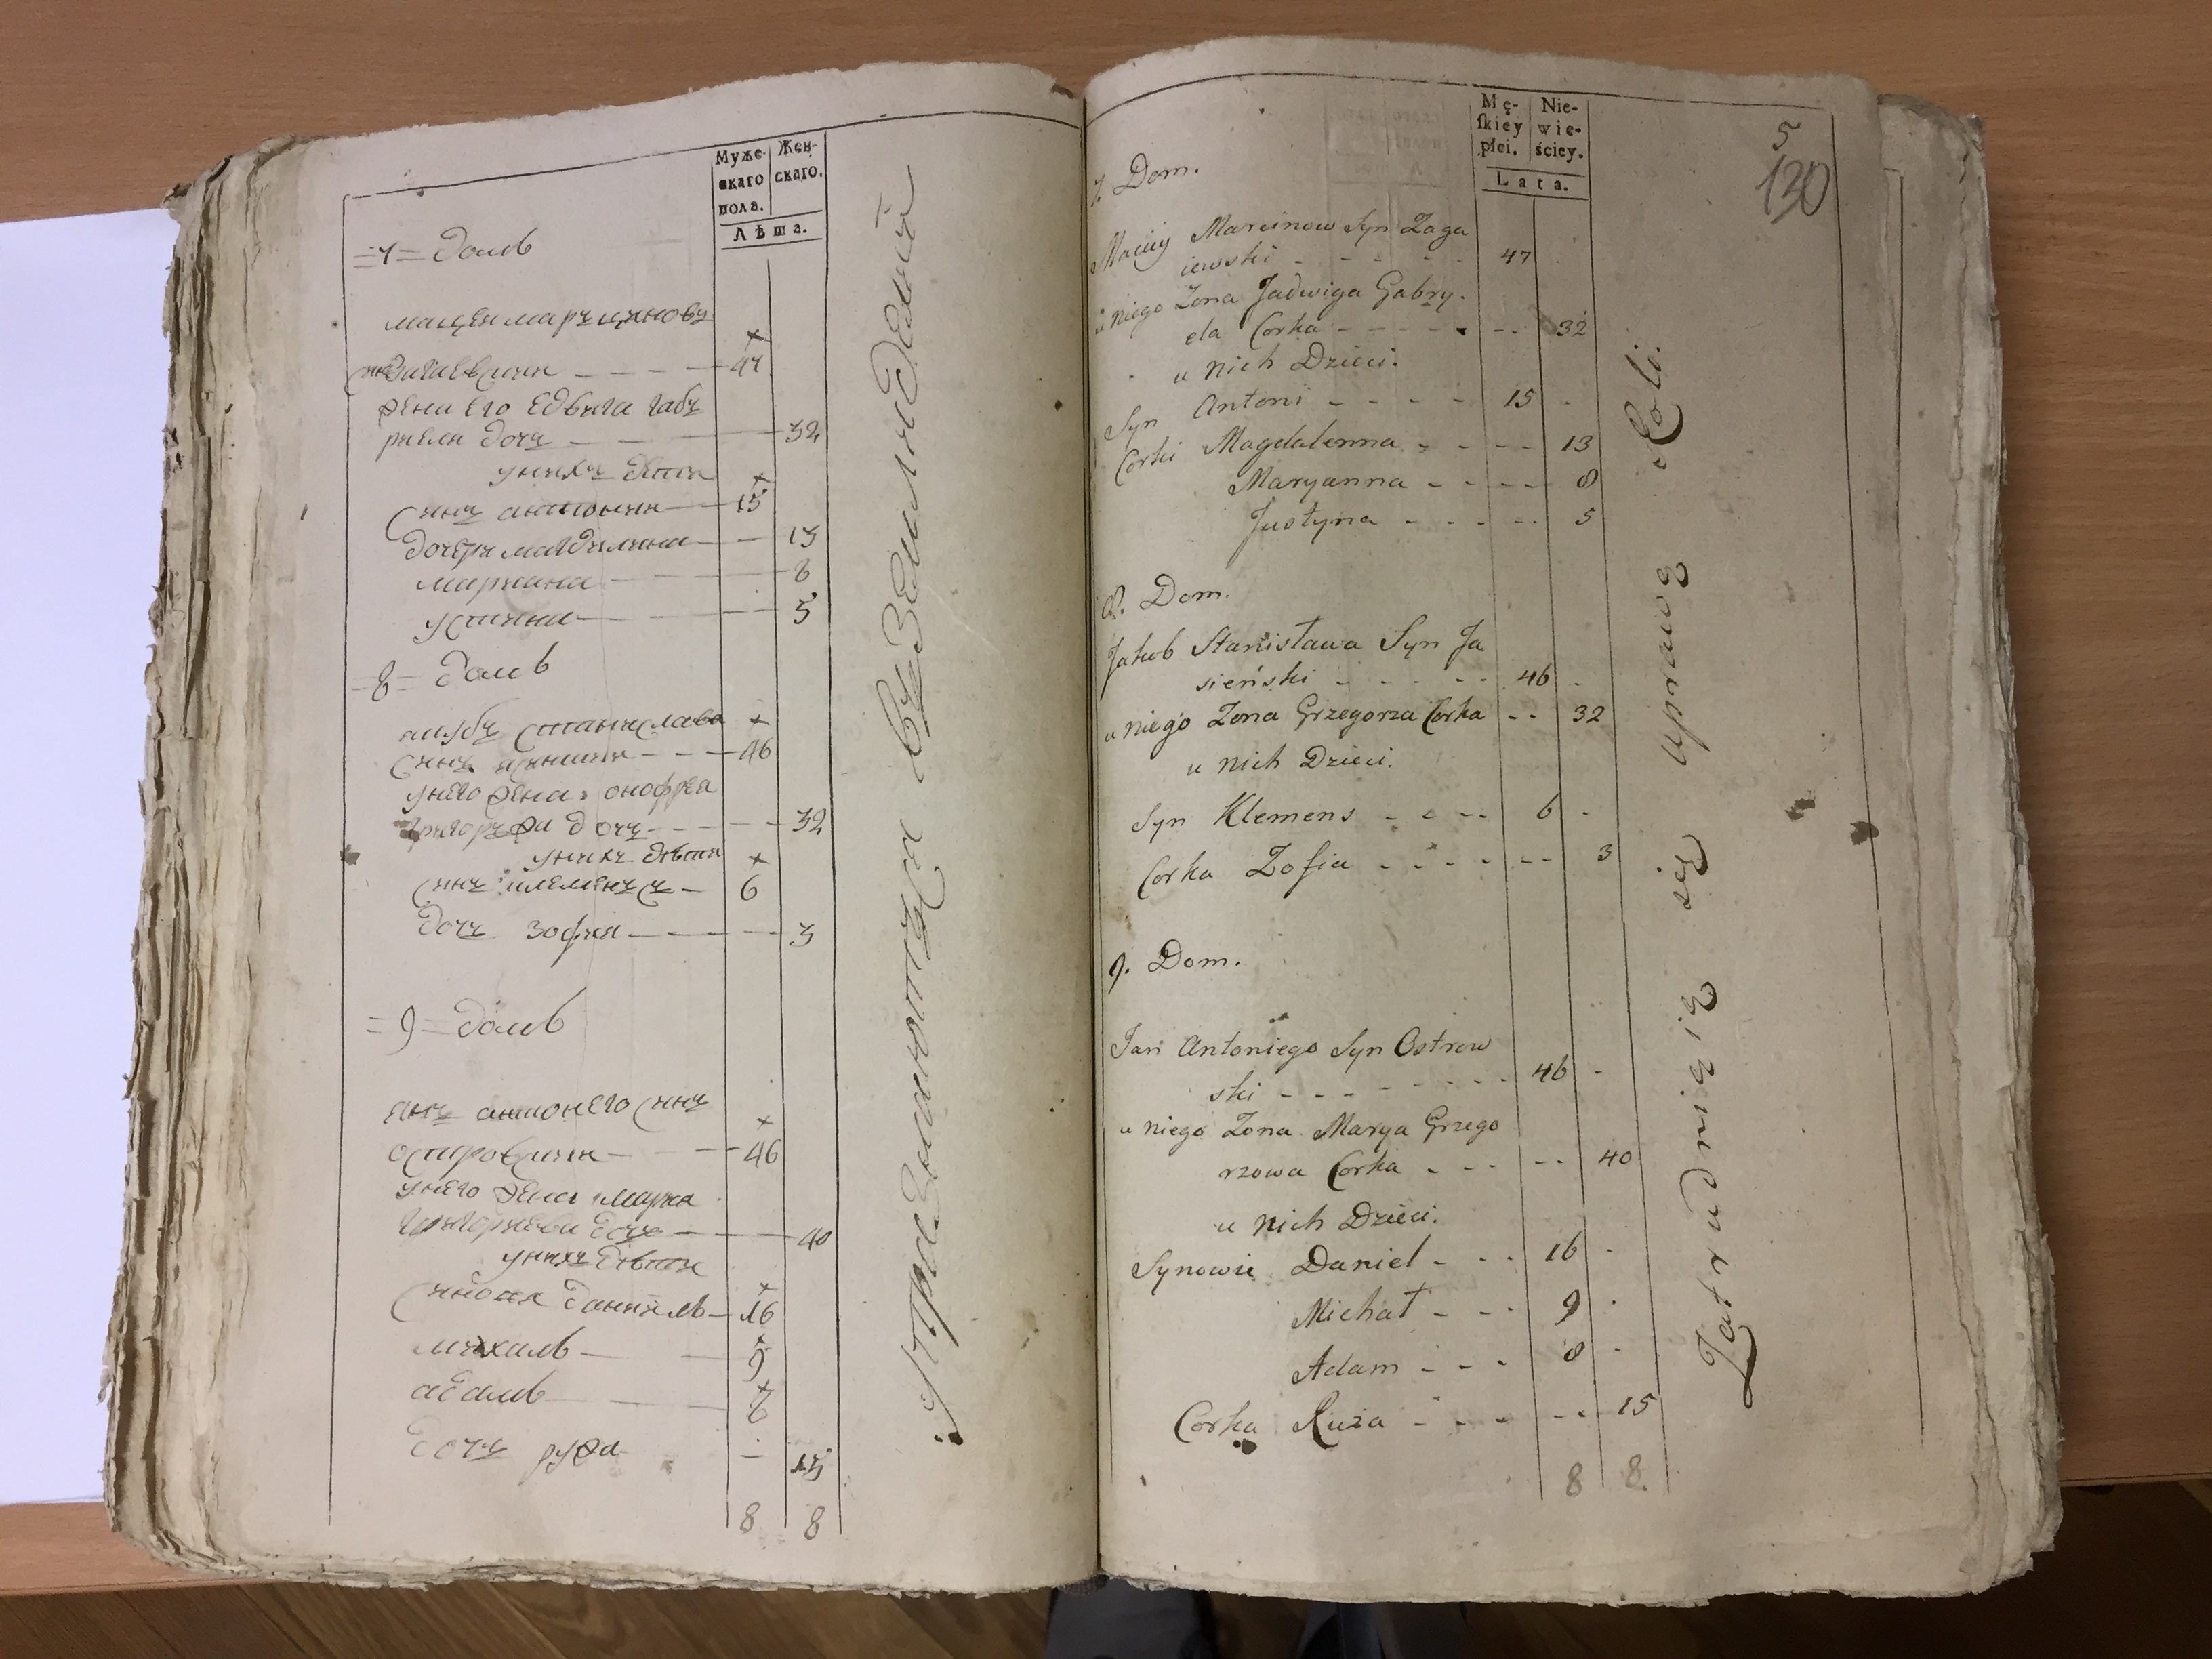 Муже-
скаго
пола.
Жен-
скаго.
Лѣта.
=7= домъ
мацей марцинову
сынъ загаевский 47
жена его едвига габ
риела дочь 32
у нихъ дети
сынъ антоний 15
дочери магдалина 13
мариана 8
устина 5
=8= домъ
якубъ станислава
сынъ 46
у него жена онофрея
дочь 32
у нихъ дѣти
сынъ клеменъсъ 6
дочъ зофия 3
=9= домъ
янъ антонего сынъ
островский 46
у него жена мария
григориева дочь 40
у нихъ дѣти
даниель 16
михаль 9
адамъ 8
дочъ ружа 15
8 8
упражняются въ земледелии
5
130
Mę-
skiey
płci.
Nie-
wie-
ściey.
Lata.
7. Dom.
Maciey Marcinow Syn Zaga
iewski 47
u niego Zona Jadwiga Gabry-
ela Corka 32
u nich Dzieci.
Syn Antoni 15
Corki Magdalenna 13
Maryanna 8
Justyna 5
8. Dom.
Jakob Stanisława Syn Ja
sieński 46
u niego Zona Grzegorza Corka 32
u nich Dzieci.
Syn Klemens 6
Corka Zofia 3
9. Dom.
Jan Antoniego Syn Ostrow
ski 46
u niego Zona Marya Grzego
rzowa Corka 40
u nich Dzieci.
Synowie Daniel 16
Michał 9
Adam 8
Corka Ruża 15
8 8.
Zatrudnią się uprawą Roli.